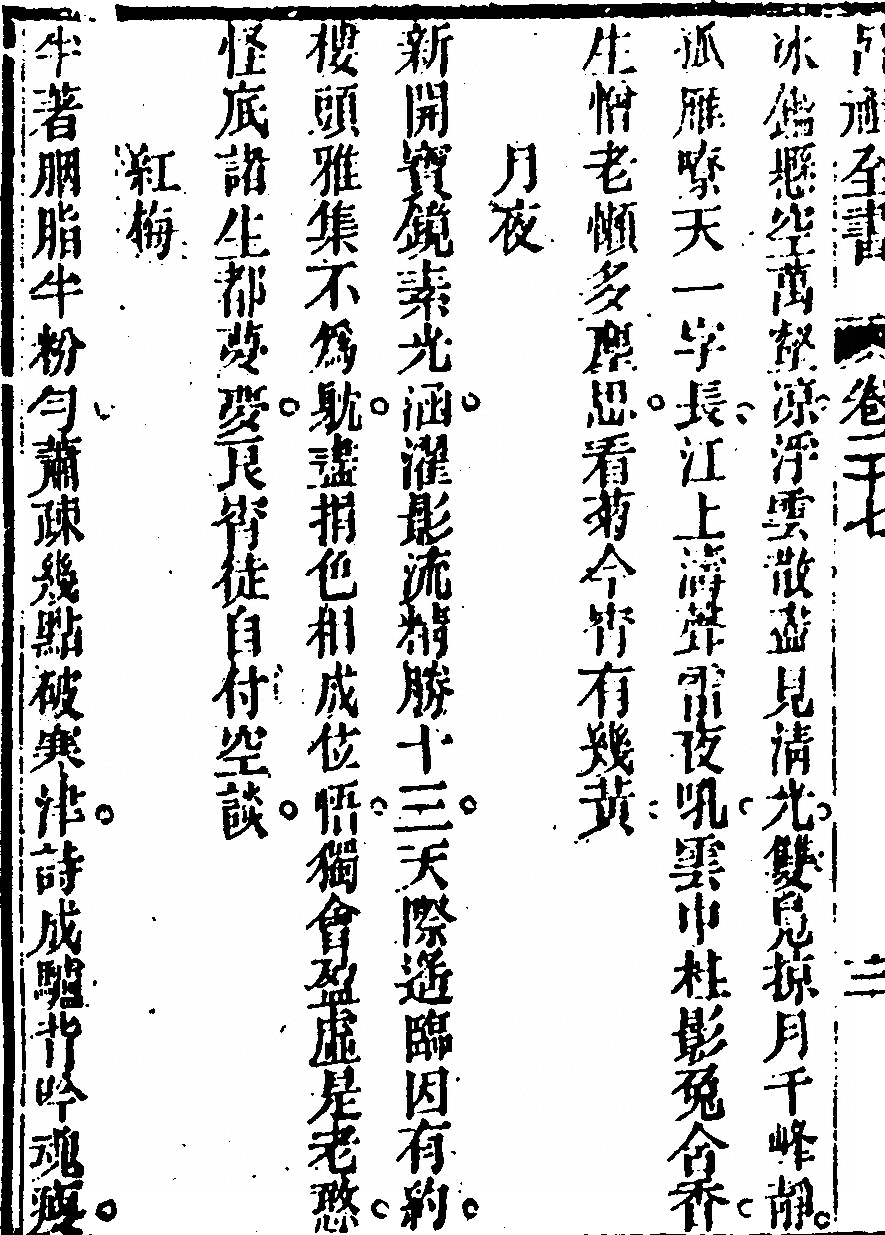 至書 卷二十七 三
冰鑑懸空萬壑涼浮雲散盡見清光雙鳧掠月千峰靜
孤雁嘹天一字長江上濤聲雷夜吼雲中桂影兔含香
生憎老懶多塵思看菊今宵有幾黃
月夜
新開寶鏡素光涵濯影流精勝十三天際遙臨因有約
樓頭雅集不爲躭盡捐色相成位悟獨會盈虛是老憨
怪底諸生都夢夢良宵徒自付空談
紅梅
半著胭脂半粉勻蕭疎幾點破寒津詩成驢背吟魂瘦